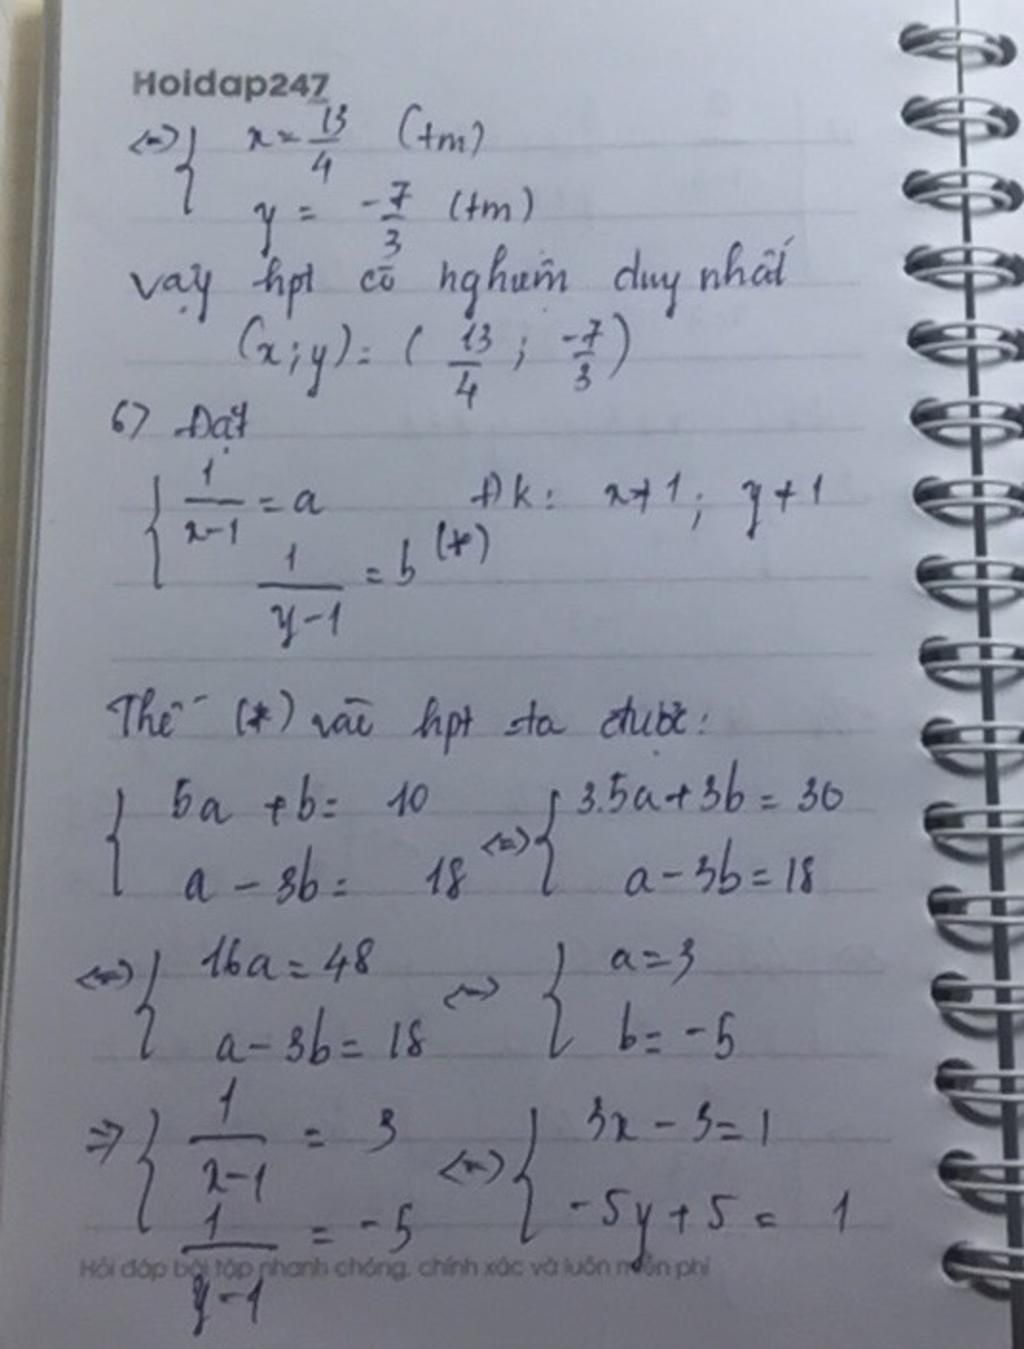 Hoidap247
<=> { x = 13/4 (tm)
y = -7/3 (tm)
vậy hpt có nghiệm duy nhất
(x;y) = ( 13/4 ; -7/3 )
6> Đặt
{ 1/(x-1) = a ĐK: x ≠ 1; y ≠ 1
1/(y-1) = b (*)
Thế (*) vào hpt ta được:
{ 5a + b = 10 <=> { 3.5a + 3b = 30
a - 3b = 18 a - 3b = 18
<=> { 16a = 48 <=> { a = 3
a - 3b = 18 b = -5
=> { 1/(x-1) = 3 <=> { 3x - 3 = 1
1/(y-1) = -5 -5y + 5 = 1
Hỏi đáp bài tập nhanh chóng, chính xác và luôn miễn phí